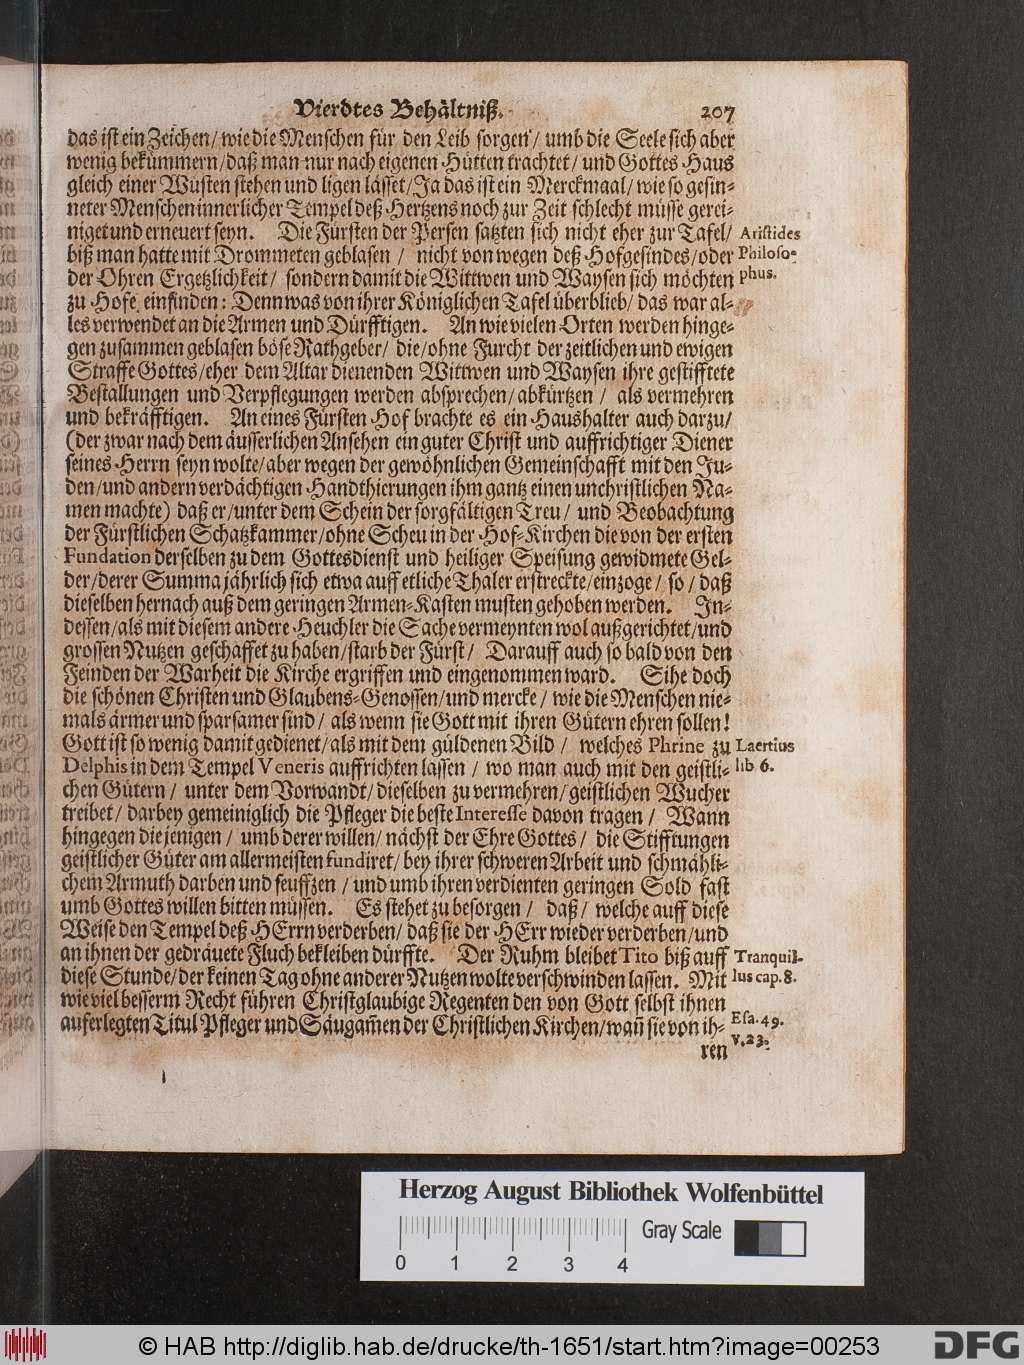 Vierdtes Behältniß. 207
das ist ein Zeichen/ wie die Menschen für den Leib sorgen/ umb die Seele sich aber
wenig bekümmern/ daß man nur nach eigenen Hütten trachtet/ und Gottes Haus
gleich einer Wüsten stehen und ligen lässet/ Ja das ist ein Merckmaal/ wie so gesin-
neter Menschen innerlicher Tempel deß Hertzens noch zur Zeit schlecht müsse gerei-
niget und erneuert seyn. Die Fürsten der Persen satzten sich nicht eher zur Tafel/
Aristides
biß man hatte mit Drommeten geblasen / nicht von wegen deß Hofgesindes/ oder
Philoso-
der Ohren Ergetzlichkeit/ sondern damit die Wittwen und Waysen sich möchten
phus.
zu Hofe einfinden: Denn was von ihrer Königlichen Tafel überblieb/ das war al-
les verwendet an die Armen und Dürfftigen. An wie vielen Orten werden hinge-
gen zusammen geblasen böse Rathgeber/ die/ ohne Furcht der zeitlichen und ewigen
Straffe Gottes/ eher dem Altar dienenden Wittwen und Waysen ihre gestifftete
Bestallungen und Verpflegungen werden absprechen/ abkürtzen / als vermehren
und bekräfftigen. An eines Fürsten Hof brachte es ein Haushalter auch darzu/
(der zwar nach dem äusserlichen Ansehen ein guter Christ und auffrichtiger Diener
seines Herrn seyn wolte/ aber wegen der gewöhnlichen Gemeinschafft mit den Ju-
den/ und andern verdächtigen Handthierungen ihm gantz einen unchristlichen Na-
men machte) daß er/ unter dem Schein der sorgfältigen Treu/ und Beobachtung
der Fürstlichen Schatzkammer/ ohne Scheu in der Hof-Kirchen die von der ersten
Fundation derselben zu dem Gottesdienst und heiliger Speisung gewidmete Gel-
der/ derer Summa jährlich sich etwa auff etliche Thaler erstreckte/ einzoge/ so/ daß
dieselben hernach auß dem geringen Armen-Kasten musten gehoben werden. In-
dessen/ als mit diesem andere Heuchler die Sache vermeynten wol außgerichtet/ und
grossen Nutzen geschaffet zu haben/ starb der Fürst/ Darauff auch so bald von den
Feinden der Warheit die Kirche ergriffen und eingenommen ward. Sihe doch
die schönen Christen und Glaubens-Genossen/ und mercke/ wie die Menschen nie-
mals ärmer und sparsamer sind/ als wenn sie Gott mit ihren Gütern ehren sollen!
Gott ist so wenig damit gedienet/ als mit dem güldenen Bild / welches Phrine zu
Laertius
Delphis in dem Tempel Veneris auffrichten lassen / wo man auch mit den geistli-
lib 6.
chen Gütern / unter dem Vorwandt/ dieselben zu vermehren/ geistlichen Wucher
treibet/ darbey gemeiniglich die Pfleger die beste Interesse davon tragen / Wann
hingegen diejenigen / umb derer willen/ nächst der Ehre Gottes/ die Stifftungen
geistlicher Güter am allermeisten fundiret/ bey ihrer schweren Arbeit und schmähli-
chem Armuth darben und seuffzen / und umb ihren verdienten geringen Sold fast
umb Gottes willen bitten müssen. Es stehet zu besorgen / daß/ welche auff diese
Weise den Tempel deß HErrn verderben/ daß sie der HErr wieder verderben/ und
an ihnen der gedräuete Fluch bekleiben dürffte. Der Ruhm bleibet Tito biß auff
Tranquil-
diese Stunde/ der keinen Tag ohne anderer Nutzen wolte verschwinden lassen. Mit
lus cap. 8.
wie viel besserm Recht führen Christglaubige Regenten den von Gott selbst ihnen
auferlegten Titul Pfleger und Säugam̃en der Christlichen Kirchen/ wañ sie von ih-
Esa. 49.
v. 23.
ren
Herzog August Bibliothek Wolfenbüttel
Gray Scale
0 1 2 3 4
© HAB http://diglib.hab.de/drucke/th-1651/start.htm?image=00253
DFG